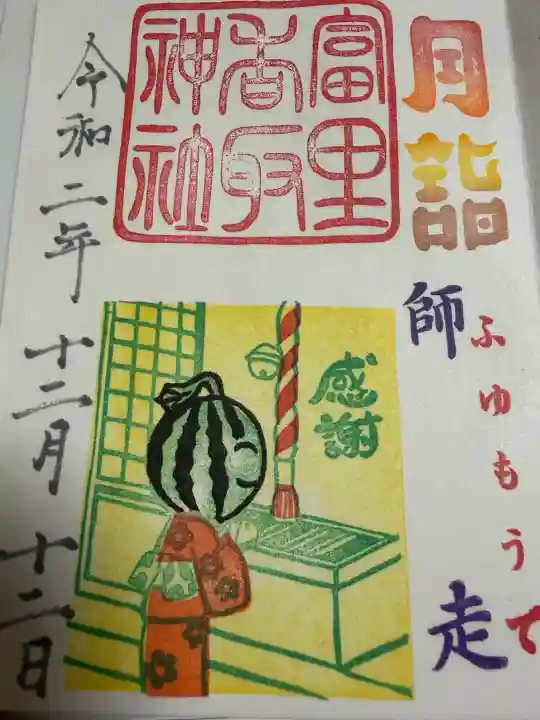 月詣
師走
ふゆもうで
富里
香取
神社
感謝
令和二年十二月十二日